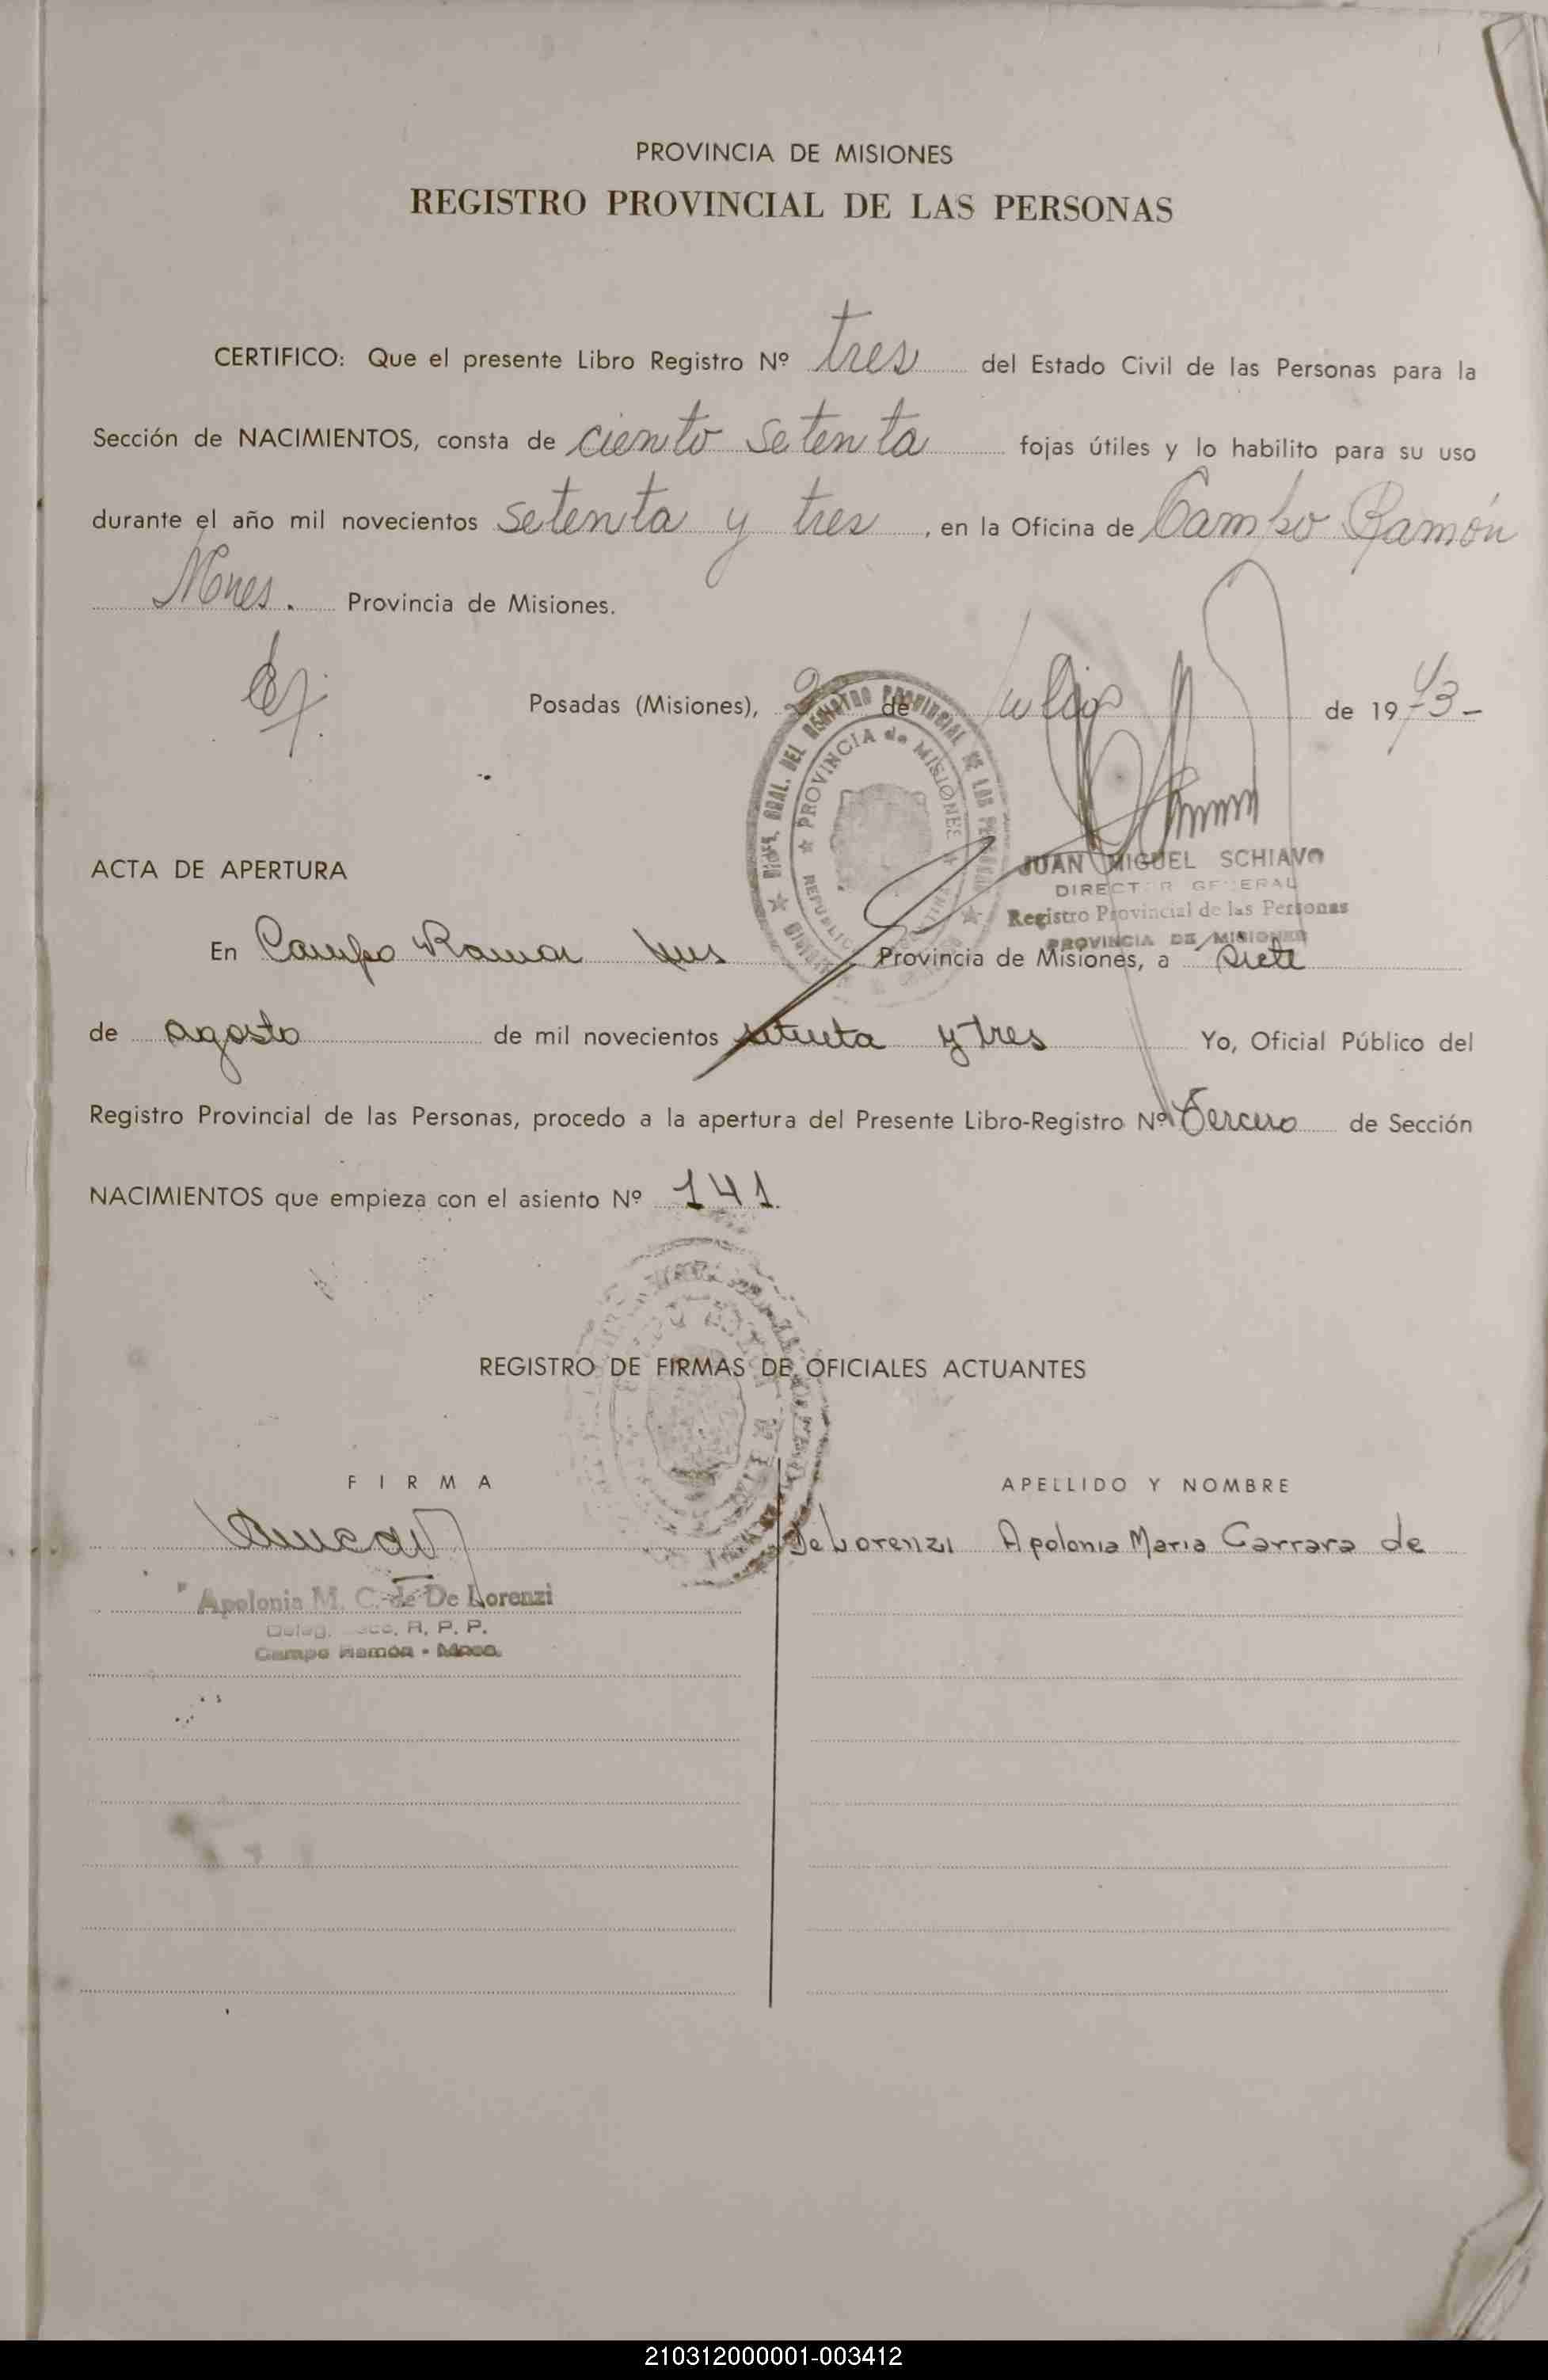 PROVINCIA DE MISIONES
REGISTRO PROVINCIAL DE LAS PERSONAS
CERTIFICO: Que el presente Libro Registro Nº tres del Estado Civil de las Personas para la
Sección de NACIMIENTOS, consta de ciento setenta fojas útiles y lo habilito para su uso
durante el año mil novecientos setenta y tres, en la Oficina de Campo Ramón
Mnes. Provincia de Misiones.
Posadas (Misiones), de Julio de 1973-
DIREC. GRAL. DEL REGISTRO PROVINCIAL DE LAS PERSONAS
PROVINCIA de MISIONES
JUAN MIGUEL SCHIAVO
DIRECTOR GENERAL
Registro Provincial de las Personas
PROVINCIA DE MISIONES
ACTA DE APERTURA
En Campo Ramon Mnes Provincia de Misiones, a siete
de agosto de mil novecientos setenta y tres Yo, Oficial Público del
Registro Provincial de las Personas, procedo a la apertura del Presente Libro-Registro Nº Tercero de Sección
NACIMIENTOS que empieza con el asiento Nº 141
REGISTRO DE FIRMAS DE OFICIALES ACTUANTES
FIRMA APELLIDO Y NOMBRE
De Lorenzi Apolonia Maria Carrara de
Apolonia M. C. de De Lorenzi
Deleg. R. P. P.
Campo Ramón - Mnes.
210312000001-003412